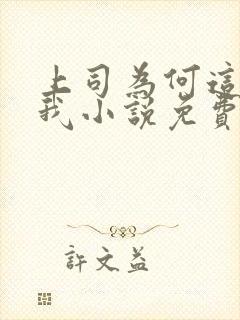 上司為何這
我小說免費
許文益